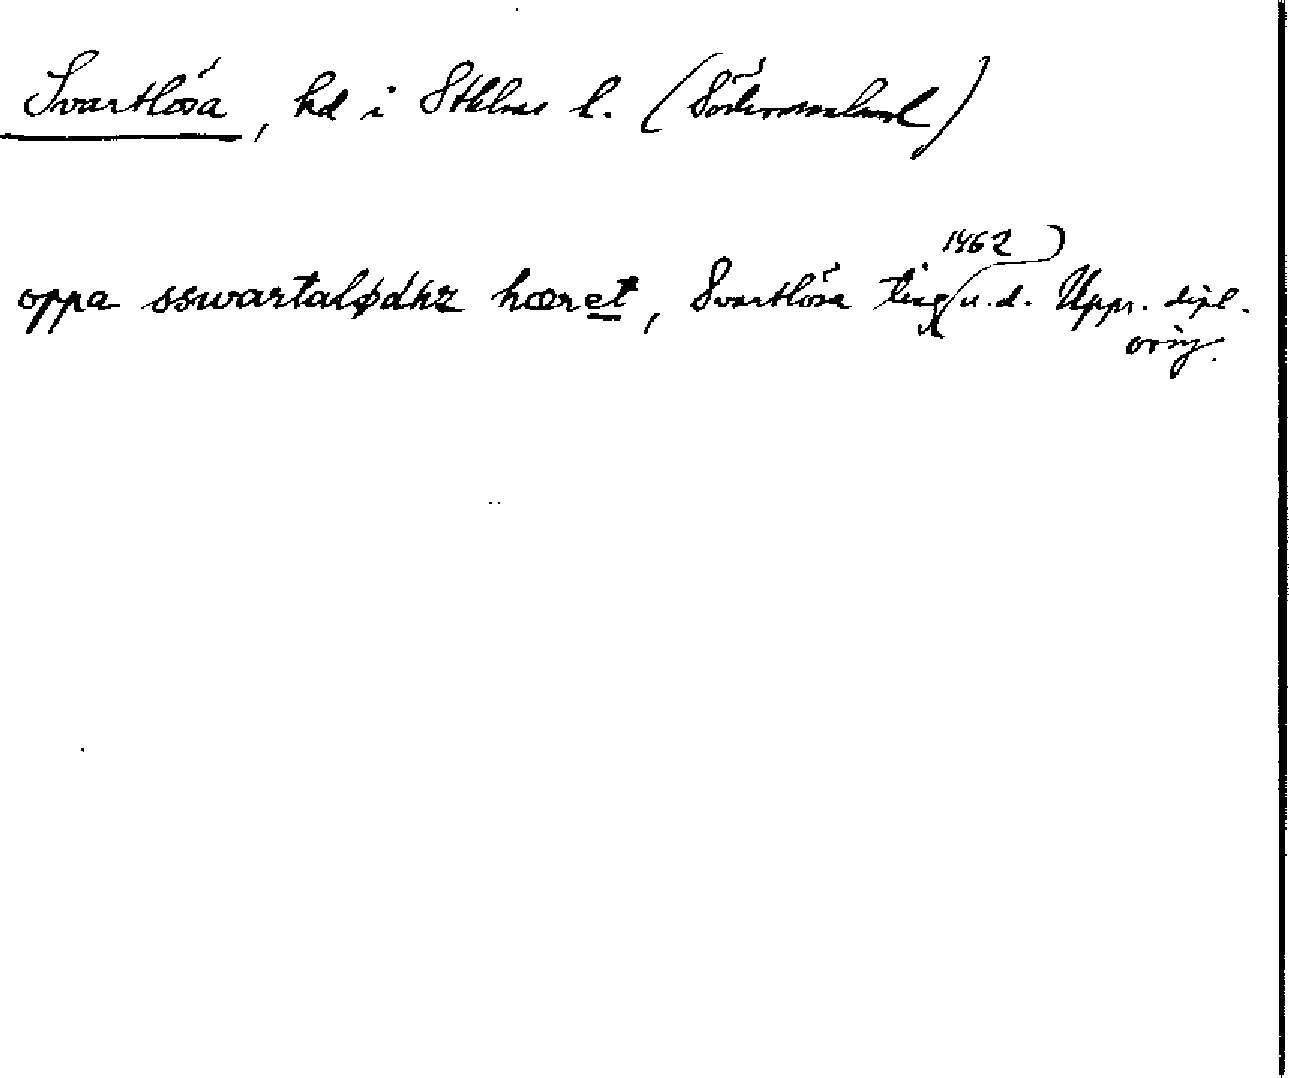 Svartlösa, hd i Sthlms l. (Södermanland)
oppa sswartalødhz hæret, Svartlösa ting 1462 u.d. Uppr. dipl.
orig.